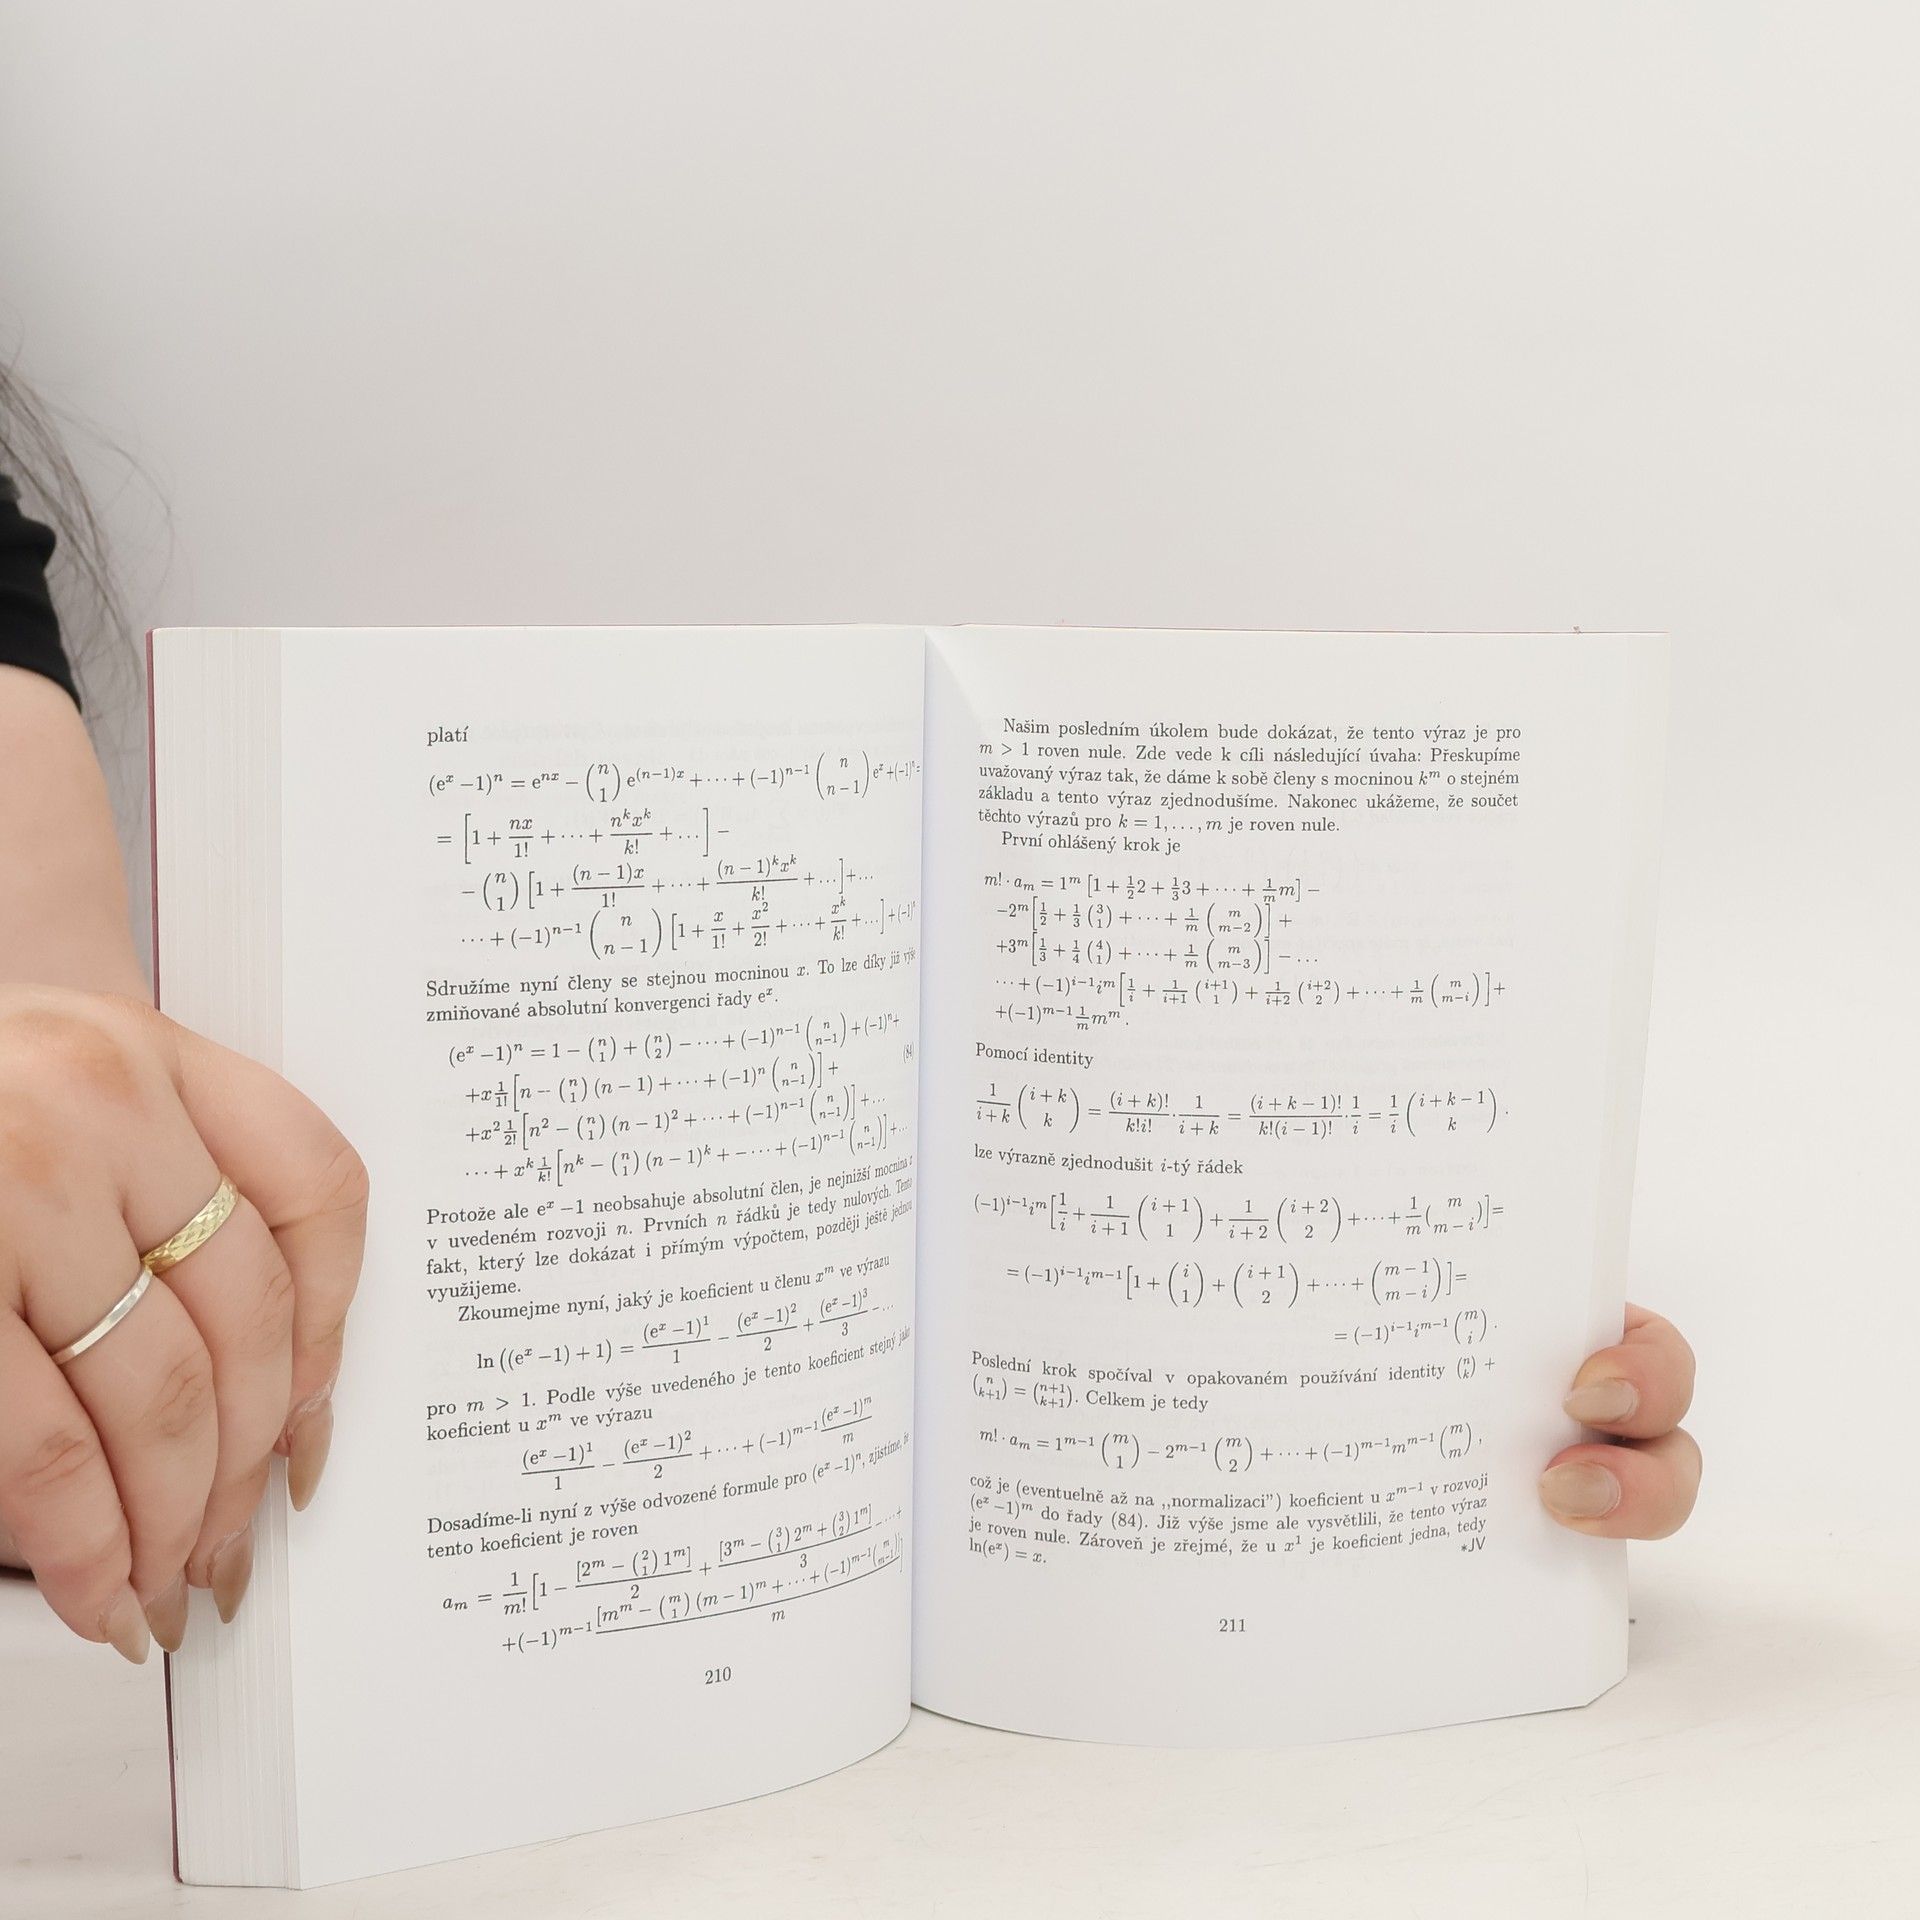 platí
(eˣ −1)ⁿ = eⁿˣ − (n 1) e⁽ⁿ⁻¹⁾ˣ + ⋯ + (−1)ⁿ⁻¹ (n n−1) eˣ +(−1)ⁿ =
= [1 + nx/1! + ⋯ + nᵏxᵏ/k! + …] −
− (n 1) [1 + (n − 1)x/1! + ⋯ + (n − 1)ᵏxᵏ/k! + …] + …
⋯ + (−1)ⁿ⁻¹ (n n−1) [1 + x/1! + x²/2! + ⋯ + xᵏ/k! + …] + (−1)ⁿ
Sdružíme nyní členy se stejnou mocninou x. To lze díky již výše
zmiňované absolutní konvergenci řady eˣ.
(eˣ −1)ⁿ = 1 − (n 1) + (n 2) − ⋯ + (−1)ⁿ⁻¹ (n n−1) + (−1)ⁿ +
(84
+x 1/1! [n − (n 1) (n − 1) + ⋯ + (−1)ⁿ (n n−1)] +
+x² 1/2! [n² − (n 1) (n − 1)² + ⋯ + (−1)ⁿ⁻¹ (n n−1)] + …
⋯ + xᵏ 1/k! [nᵏ − (n 1) (n − 1)ᵏ + − ⋯ + (−1)ⁿ⁻¹ (n n−1)] + …
Protože ale eˣ −1 neobsahuje absolutní člen, je nejnižší mocnina x
v uvedeném rozvoji n. Prvních n řádků je tedy nulových. Tento
fakt, který lze dokázat i přímým výpočtem, později ještě jednou
využijeme.
Zkoumejme nyní, jaký je koeficient u členu xᵐ ve výrazu
ln ((eˣ −1) + 1) = (eˣ −1)¹/1 − (eˣ −1)²/2 + (eˣ −1)³/3 − …
pro m > 1. Podle výše uvedeného je tento koeficient stejný jako
koeficient u xᵐ ve výrazu
(eˣ −1)¹/1 − (eˣ −1)²/2 + ⋯ + (−1)ᵐ⁻¹ (eˣ −1)ᵐ/m
Dosadíme-li nyní z výše odvozené formule pro (eˣ −1)ⁿ, zjistíme, že
tento koeficient je roven
aₘ = 1/m! [1 − [2ᵐ − (2 1) 1ᵐ]/2 + [3ᵐ − (3 1) 2ᵐ + (3 2) 1ᵐ]/3 − ⋯ +
+(−1)ᵐ⁻¹ [mᵐ − (m 1) (m − 1)ᵐ + ⋯ + (−1)ᵐ⁻¹ (m m−1)]/m]
210
Našim posledním úkolem bude dokázat, že tento výraz je pro
m > 1 roven nule. Zde vede k cíli následující úvaha: Přeskupíme
uvažovaný výraz tak, že dáme k sobě členy s mocninou kᵐ o stejném
základu a tento výraz zjednodušíme. Nakonec ukážeme, že součet
těchto výrazů pro k = 1, …, m je roven nule.
První ohlášený krok je
m! · aₘ = 1ᵐ [1 + 1/2 2 + 1/3 3 + ⋯ + 1/m m] −
−2ᵐ [1/2 + 1/3 (3 1) + ⋯ + 1/m (m m−2)] +
+3ᵐ [1/3 + 1/4 (4 1) + ⋯ + 1/m (m m−3)] − …
⋯ + (−1)ⁱ⁻¹iᵐ [1/i + 1/i+1 (i+1 1) + 1/i+2 (i+2 2) + ⋯ + 1/m (m m−i)] +
+(−1)ᵐ⁻¹ 1/m mᵐ.
Pomocí identity
1/i + k (i + k k) = (i + k)!/k!i! · 1/i + k = (i + k − 1)!/k!(i − 1)! · 1/i = 1/i (i + k − 1 k) .
lze výrazně zjednodušit i-tý řádek
(−1)ⁱ⁻¹iᵐ [1/i + 1/i + 1 (i + 1 1) + 1/i + 2 (i + 2 2) + ⋯ + 1/m (m m − i)] =
= (−1)ⁱ⁻¹iᵐ⁻¹ [1 + (i 1) + (i + 1 2) + ⋯ + (m − 1 m − i)] =
= (−1)ⁱ⁻¹iᵐ⁻¹ (m i) .
Poslední krok spočíval v opakovaném používání identity (n k) +
(n k+1) = (n+1 k+1). Celkem je tedy
m! · aₘ = 1ᵐ⁻¹ (m 1) − 2ᵐ⁻¹ (m 2) + ⋯ + (−1)ᵐ⁻¹mᵐ⁻¹ (m m) ,
což je (eventuelně až na ,,normalizaci") koeficient u xᵐ⁻¹ v rozvoji
(eˣ −1)ᵐ do řady (84). Již výše jsme ale vysvětlili, že tento výraz
je roven nule. Zároveň je zřejmé, že u x¹ je koeficient jedna, tedy
ln(eˣ) = x.
*JV
211